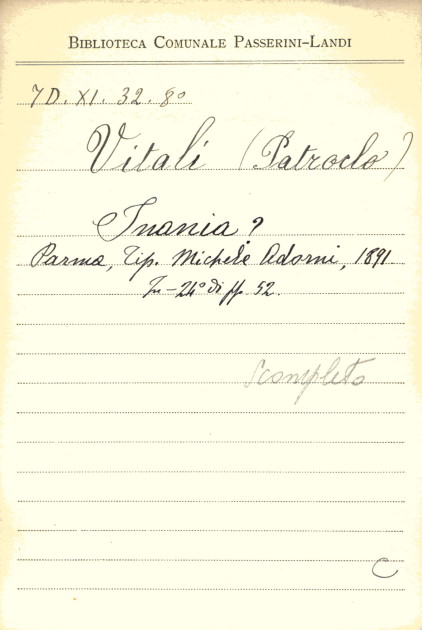 BIBLIOTECA COMUNALE PASSERINI-LANDI
7D. XI. 32. 8º
Vitali (Patroclo)
Inania?
Parma, Tip. Michele Adorni, 1891.
In-24º di pp. 52.
Scompleto
C